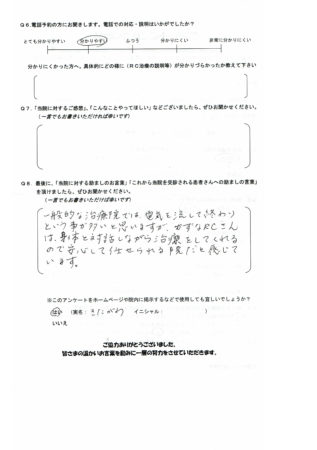 Q6.電話予約の方にお聞きします。電話での対応・説明はいかがでしたか？
とても分かりやすい 分かりやすい ふつう 分かりにくい 非常に分かりにくい
分かりにくかった方へ。具体的にどの様に（ＲＣ治療の説明等）が分かりづらかったか教えて下さい
Q7.「当院に対するご感想」、「こんなことやってほしい」などございましたら、ぜひお聞かせください。
（一言でもお書きいただければ幸いです）
Q8.最後に、「当院に対する励ましのお言葉」「これから当院を受診される患者さんへの励ましの言葉」
を頂けましたら、ぜひお聞かせください。
（一言でもお書きいただければ幸いです）
一般的な治療院では電気を流して終わり
という事が多いと思いますが、かずなRCさん
は、身体と対話しながら治療をしてくれる
ので安心して任せられる院だと感じて
います。
※このアンケートをホームページや院内に掲示するなどで使用しても宜しいでしょうか？
はい （実名：きたがわ イニシャル： ）
いいえ
ご協力ありがとうございました。
皆さまの温かいお言葉を励みに一層の努力をさせていただきます。